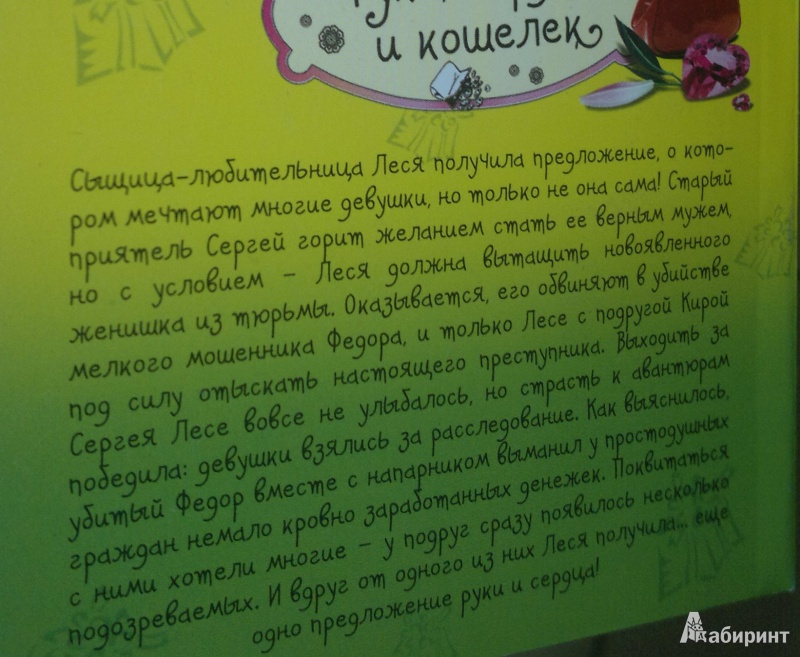 и кошелек
Сыщица-любительница Леся получила предложение, о кото-
ром мечтают многие девушки, но только не она сама! Старый
приятель Сергей горит желанием стать ее верным мужем,
но с условием – Леся должна вытащить новоявленного
женишка из тюрьмы. Оказывается, его обвиняют в убийстве
мелкого мошенника Федора, и только Лесе с подругой Кирой
под силу отыскать настоящего преступника. Выходить за
Сергея Лесе вовсе не улыбалось, но страсть к авантюрам
победила: девушки взялись за расследование. Как выяснилось,
убитый Федор вместе с напарником выманил у простодушных
граждан немало кровно заработанных денежек. Поквитаться
с ними хотели многие – у подруг сразу появилось несколько
подозреваемых. И вдруг от одного из них Леся получила... еще
одно предложение руки и сердца!
Лабиринт